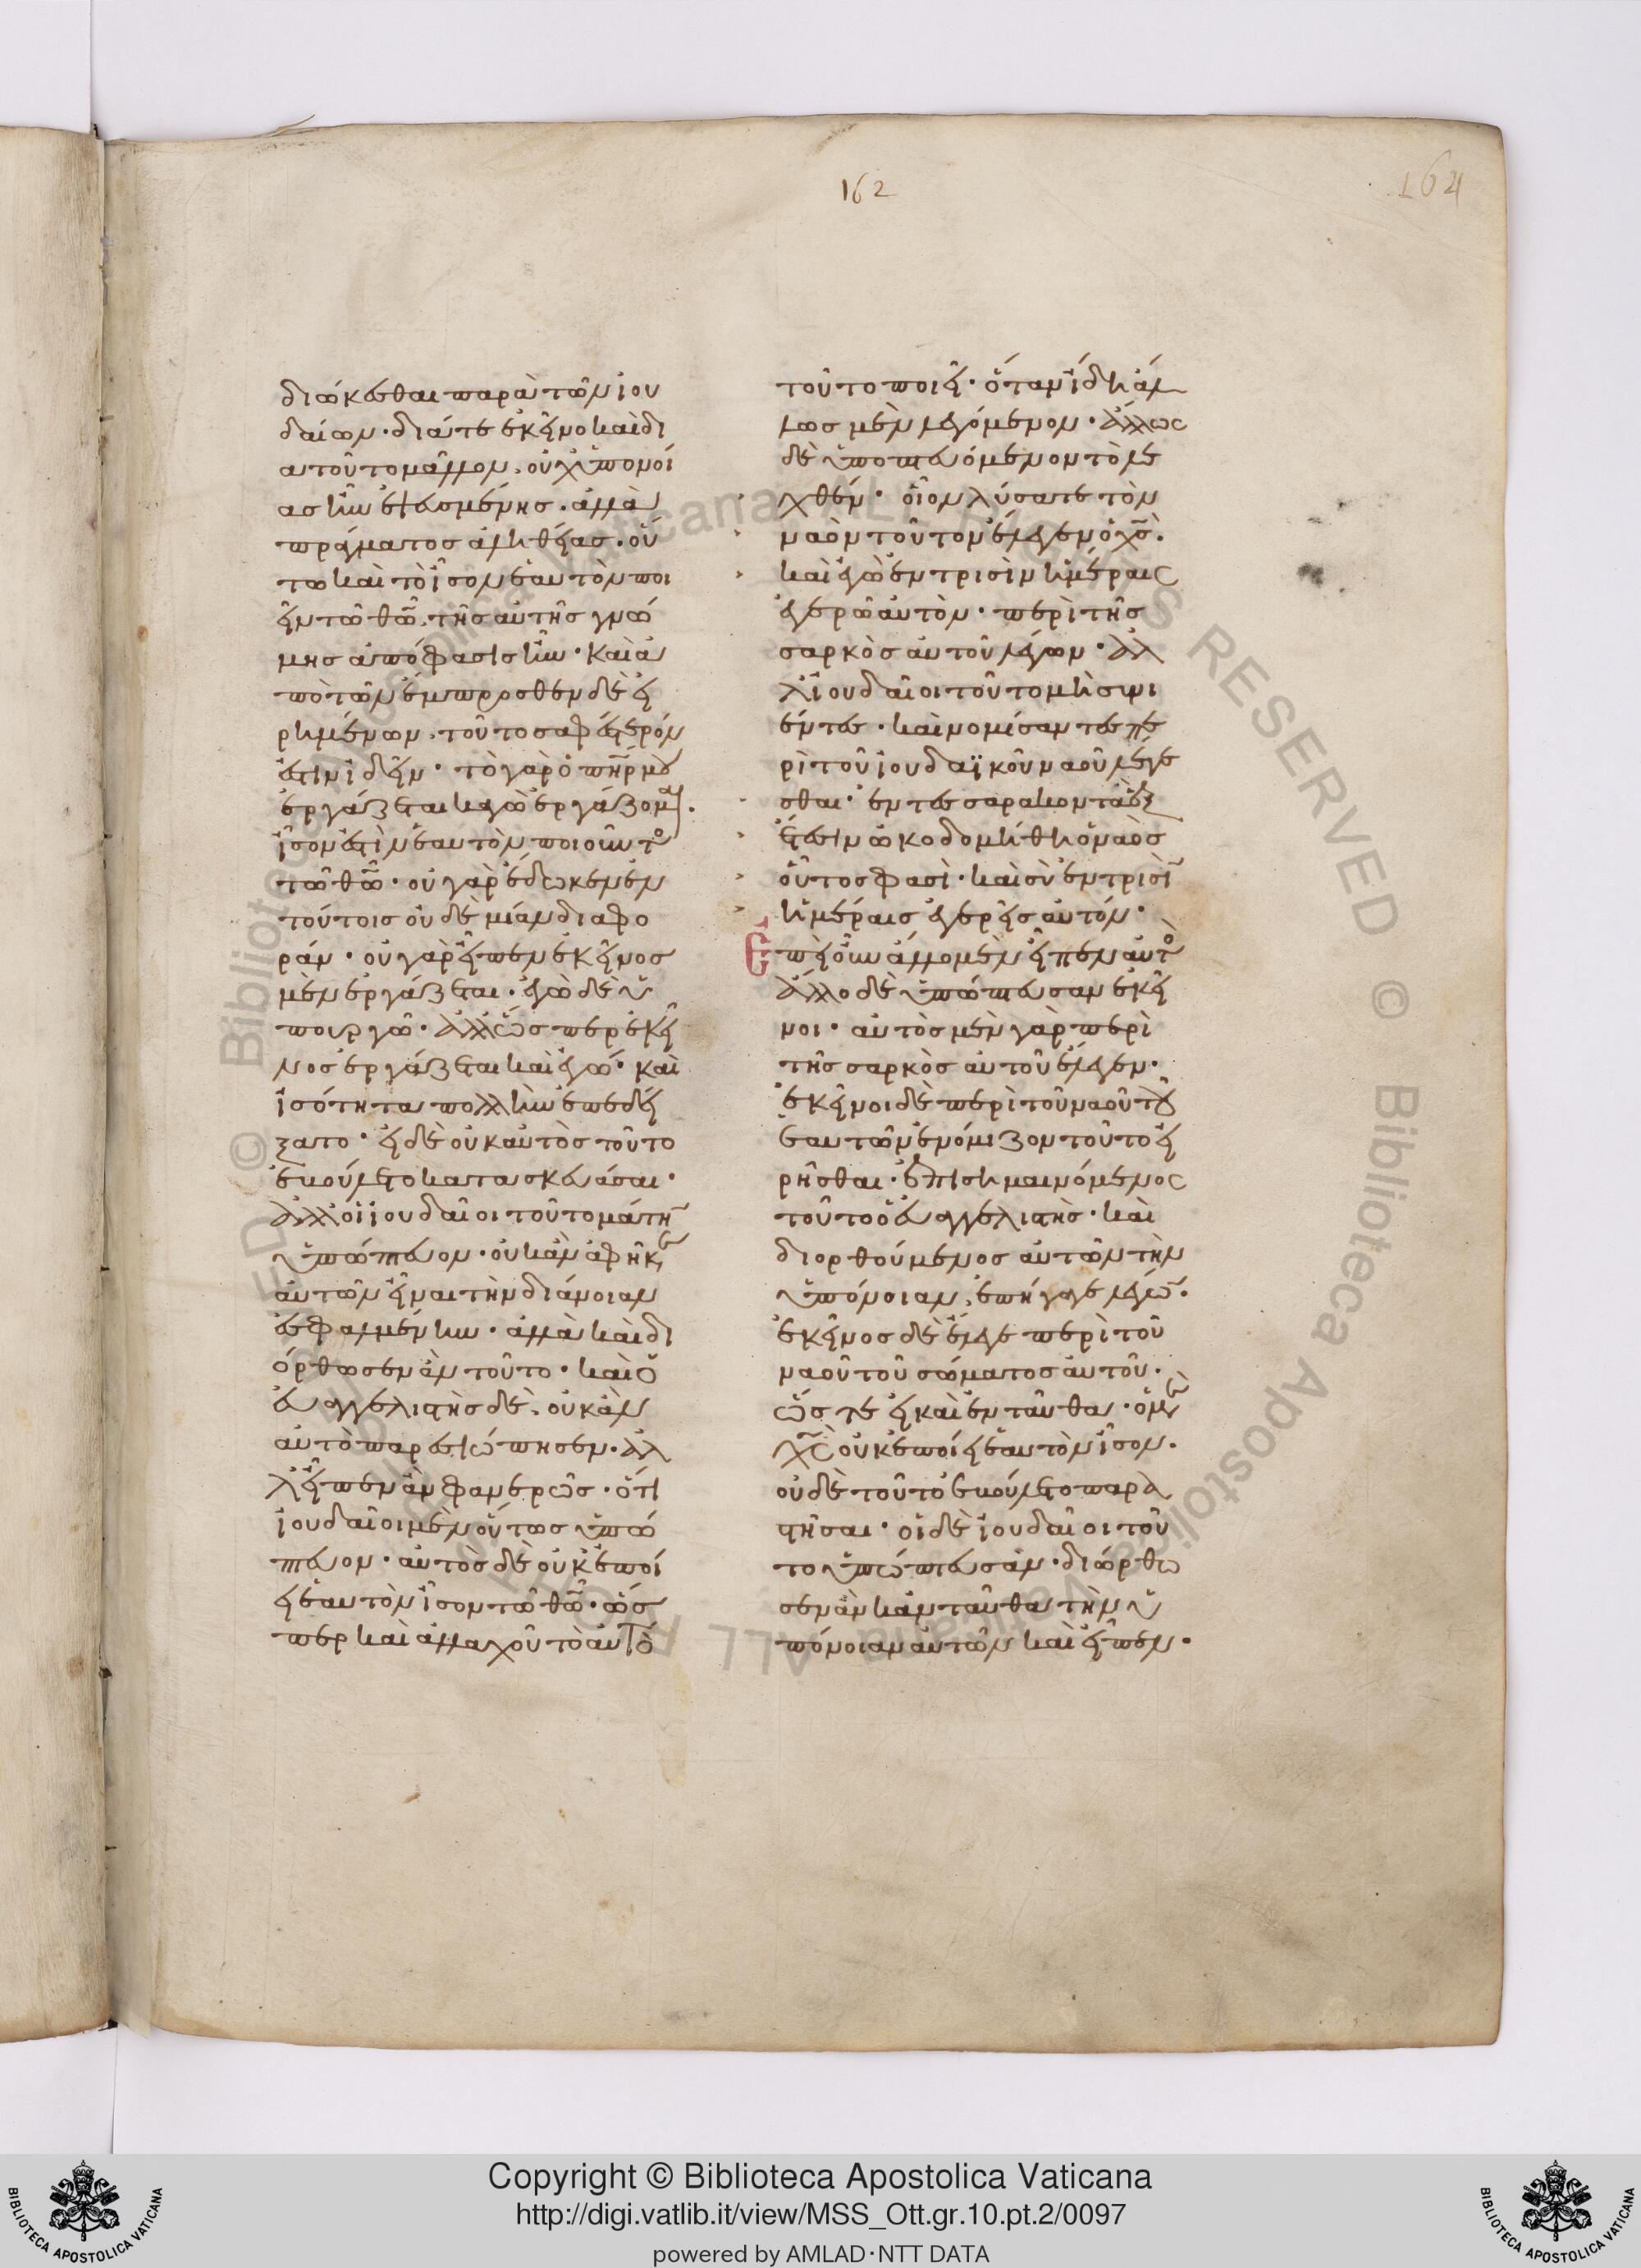 162
164
διώκεσθαι παρὰ τῶν ἰου
δαίων· διά τε ἐκεῖνο καὶ δι
α τοῦτο μᾶλλον, οὐχ ὑπονοί
ας ἦν ἐψευσμένης· ἀλλὰ
πράγματος ἀληθείας· οὕ
τω καὶ τὸ ἴσον ἑαυτὸν ποι
εῖν τῶ θῶ, τῆς αὐτῆς γνώ
μης ἀπόφασις ἦν· καὶ ἀ
πὸ τῶν ἔμπροσθεν δὲ εἰ
ρημένων, τοῦτο σαφέστερόν
ἐστιν ἰδεῖν· τὸ γὰρ ὁ πηρ μου
ἐργάζεται καγὼ ἐργάζομαι·
ἴσον ἐστὶν ἑαυτὸν ποιοῦντος
τῶ θῶ· οὐ γὰρ ἔδωκεν ἐν
τούτοις οὐδὲ μίαν διαφο
ράν· οὐ γὰρ εἶπεν ἐκεῖνος
μὲν ἐργάζεται· ἐγὼ δὲ ὑ
πουργῶ· ἀλλ ὥσπερ ἐκεῖ
νος ἐργάζεται καὶ ἐγώ· καὶ
ἰσότητα πολλὴν ἐπεδεί
ξατο· εἰ δὲ οὐκ αὐτὸς τοῦτο
ἐβούλετο κατασκευάσαι·
ἀλλ οἱ ἰουδαῖοι τοῦτο μάτην
ὑπώπτευον· οὐκ ἂν ἀφῆκεν
αὐτῶν εἶναι τὴν διάνοιαν
ἐσφαλμένην· ἀλλὰ καὶ δι
όρθωσεν ἂν τοῦτο· καὶ ὁ
εὐαγγελιστὴς δὲ, οὐκ ἂν
αὐτὸ παρεσιώπησεν· ἀλ
λ εἶπεν ἂν φανερῶς· ὅτι
ἰουδαῖοι μὲν οὕτως ὑπώ
πτευον· αὐτὸς δὲ οὐκ ἐποί
ει ἑαυτὸν ἴσον τῶ θῶ· ὥσ
περ καὶ ἀλλαχοῦ τὸ αὐτὸ
τοῦτο ποιεῖ· ὅταν ἴδη ἄλ
λως μὲν λεγόμενον· ἄλλως
δὲ ὑποπτευόμενον τὸ λε
χθέν· οἷον λύσατε τὸν
ναὸν τοῦτον ἔλεγεν ὁ χς·
καὶ ἐγὼ ἐν τρισὶν ἡμέραις
ἐγερῶ αὐτὸν· περὶ τῆς
σαρκὸς αὐτοῦ λέγων· ἀλ
λ ἰουδαῖοι τοῦτο μὴ συνι
έντες· καὶ νομίσαντες πε
ρὶ τοῦ ἰουδαϊκοῦ ναοῦ λέγε
σθαι· ἐν τεσσαρακοντα ἓξ
ἔτεσιν ὠκοδομήθη ὁ ναὸς
οὗτος φασὶ· καὶ σὺ ἐν τρισὶν
ἡμέραις ἐγερεῖς αὐτόν·
Ἐπεὶ οὖν ἄλλο μὲν εἶπεν αὐτὸς
ἄλλο δὲ ὑπώπτευσαν ἐκεῖ
νοι· αὐτὸς μὲν γὰρ περὶ
τῆς σαρκὸς αὐτοῦ ἔλεγεν·
ἐκεῖνοι δὲ περὶ τοῦ ναοῦ τοῦ
ἑαυτῶν ἐνόμιζον τοῦτο εἰ
ρῆσθαι· ἐπισημαινόμενος
τοῦτο ὁ εὐαγγελιστὴς· καὶ
διορθούμενος αὐτῶν τὴν
ὑπόνοιαν, ἐπήγαγε λέγων·
ἐκεῖνος δὲ ἔλεγε περὶ τοῦ
ναοῦ τοῦ σώματος αὐτοῦ·
ὥστε εἰ καὶ ἐνταῦθα· ὁ μὲν
χς οὐκ ἐποίει ἑαυτὸν ἴσον·
οὐδὲ τοῦτο ἐβούλετο παρα
στῆσαι· οἱ δὲ ἰουδαῖοι τοῦ
το ὑπώπτευσαν· διώρθω
σεν ἂν κἀνταῦθα τὴν ὑ
πόνοιαν αὐτῶν καὶ εἶπεν·
Copyright © Biblioteca Apostolica Vaticana
http://digi.vatlib.it/view/MSS_Ott.gr.10.pt.2/0097
powered by AMLAD·NTT DATA